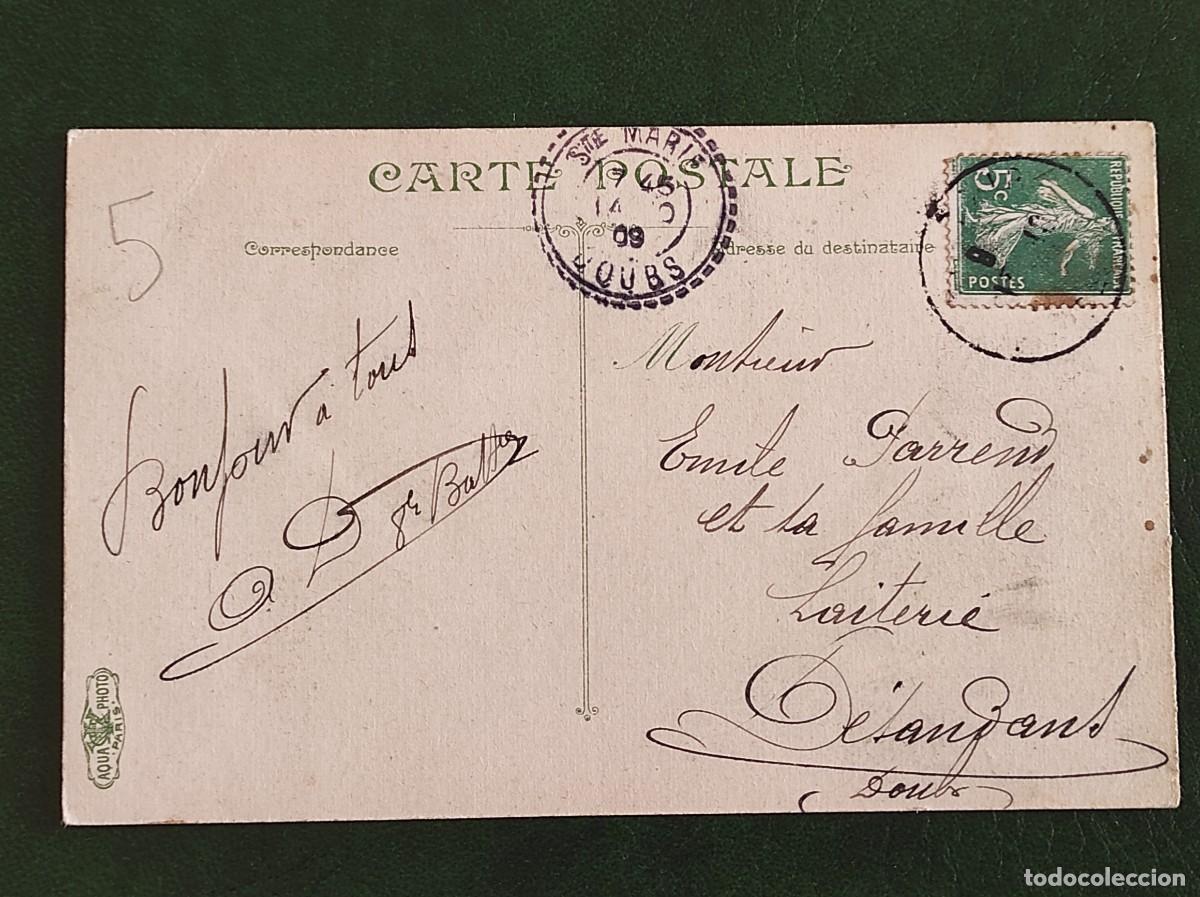 5
CARTE POSTALE
STE MARIE
7 45
14
09
DOUBS
Correspondance
Adresse du destinataire
5c
RÉPUBLIQUE FRANÇAISE
POSTES
Bonjour à tous
Monsieur
Emile
et la famille
Laiterie
Désandans
Doubs
AQUA PHOTO
PARIS
todocoleccion